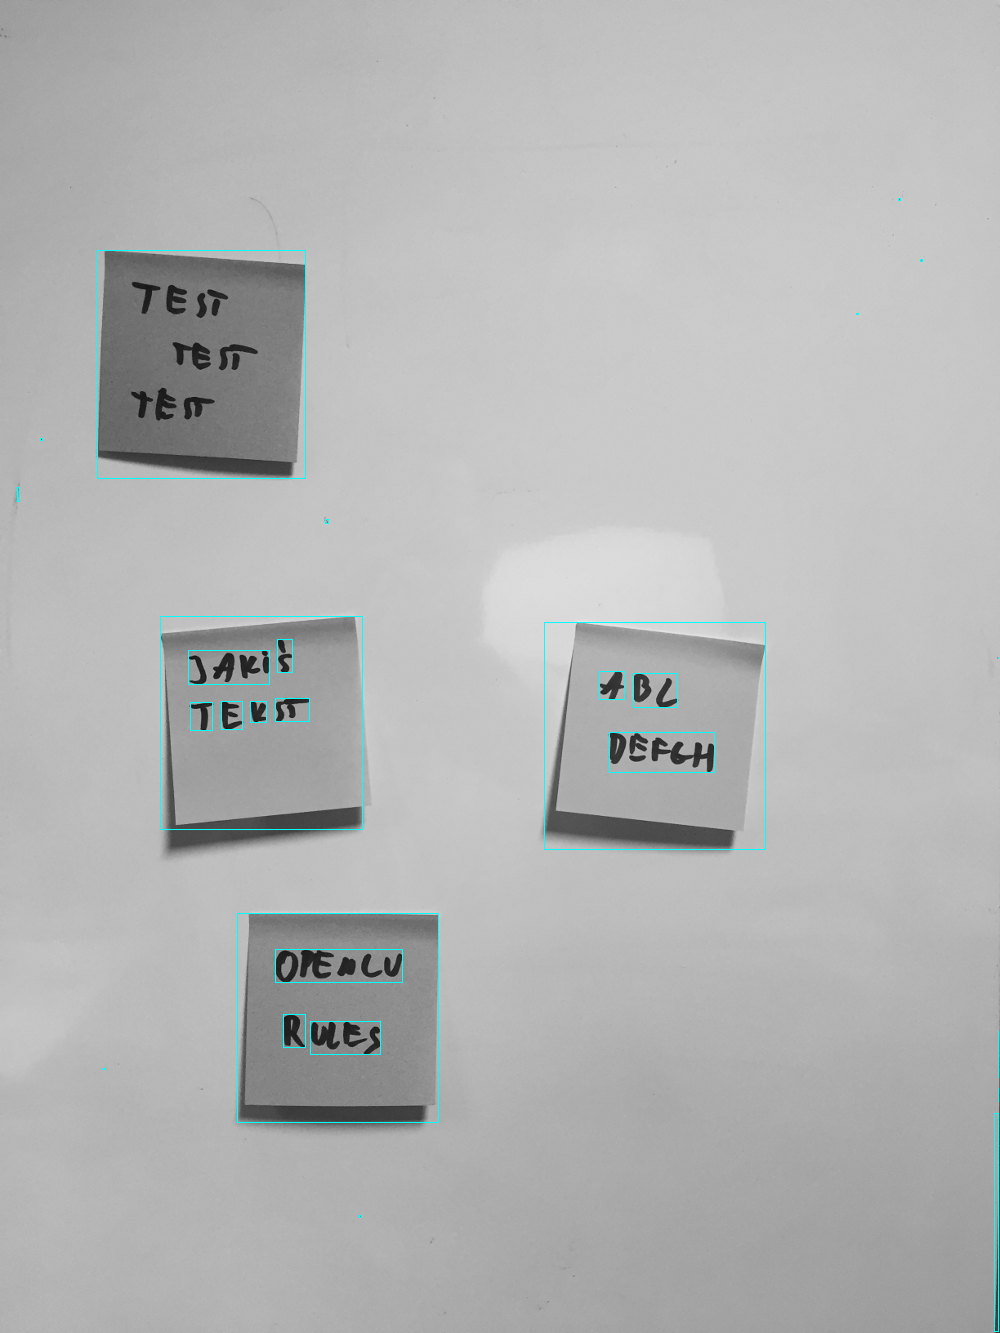 TEST
TEST
TEST
JAKiś
TEKST
ABC
DEFGH
OPEnCV
RULES